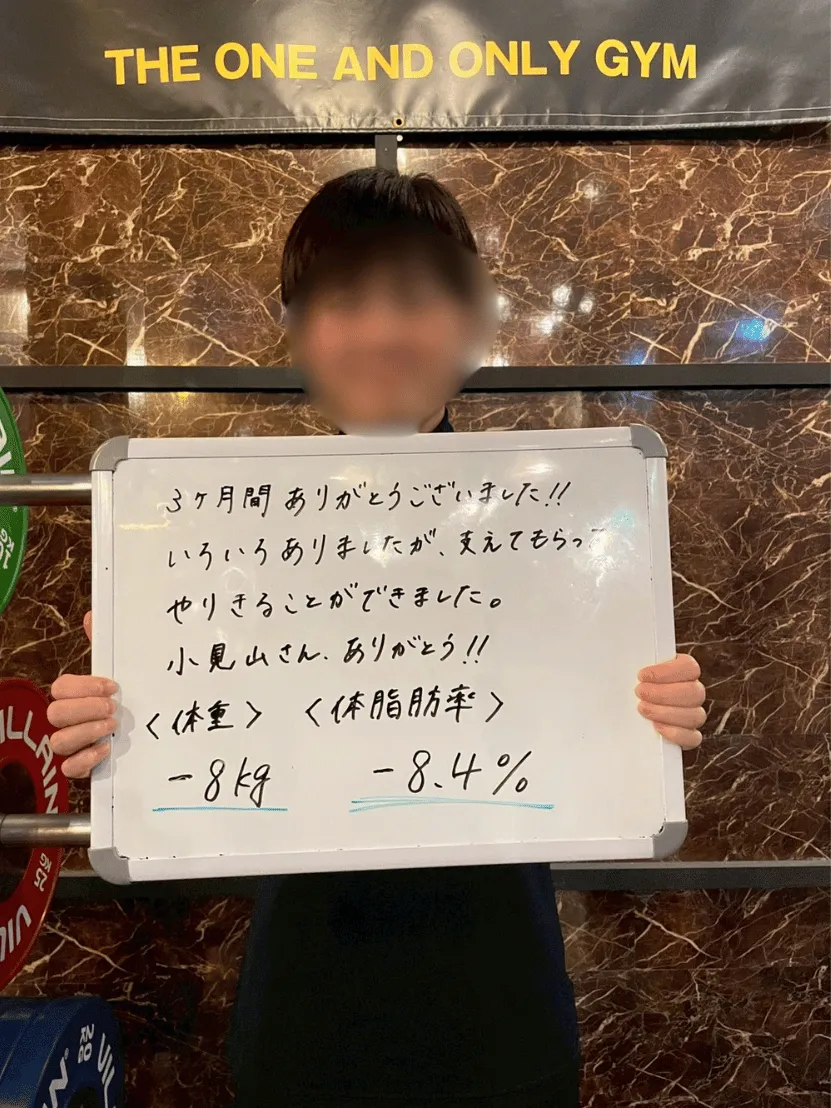 THE ONE AND ONLY GYM
3ヶ月間 ありがとうございました!!
いろいろありましたが、支えてもらって
やりきることができました。
小見山さん、ありがとう!!
<体重> <体脂肪率>
-8kg -8.4%
VILLAIN
25KG
VILL
20KG